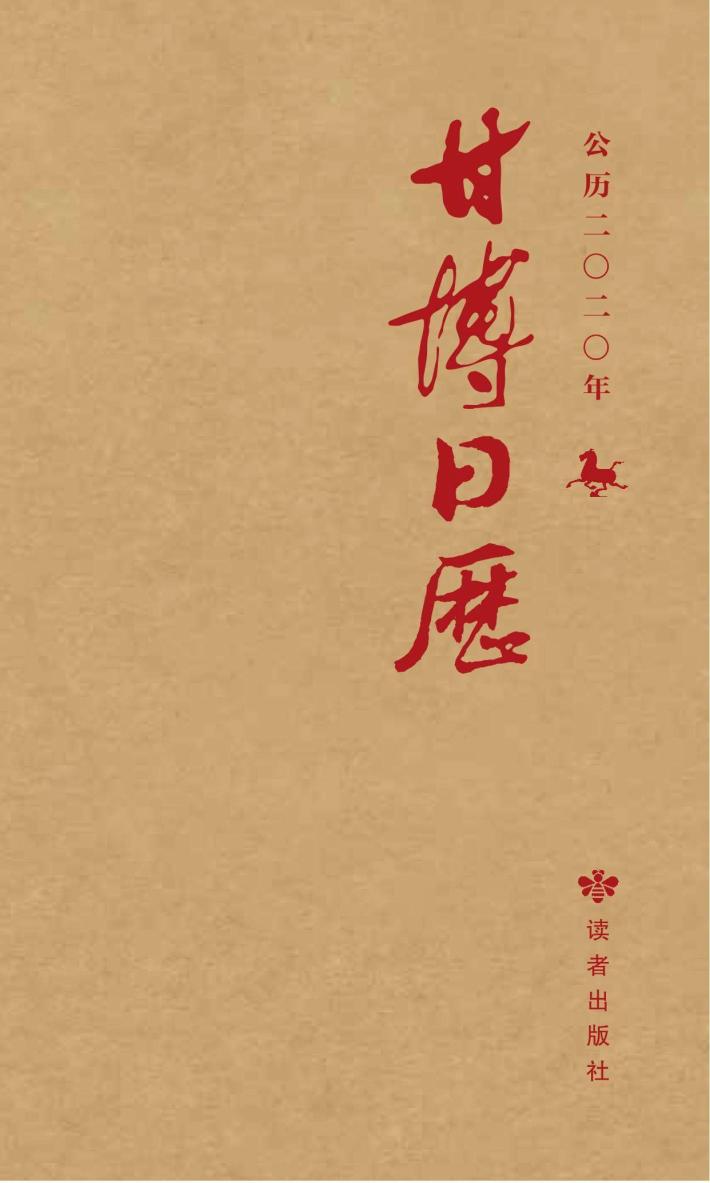 公历二〇二〇年
甘博日历
读者出版社